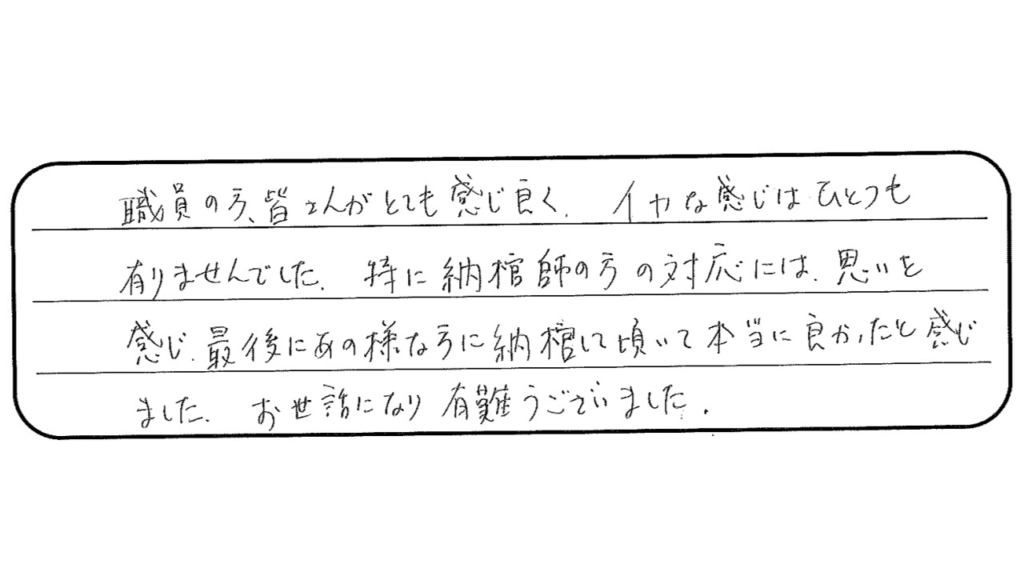 職員の方、皆さんがとても感じ良く、イヤな感じはひとつも
有りませんでした。特に納棺師の方の対応には、思いを
感じ、最後にあの様な方に納棺して頂いて本当に良かったと感じ
ました。お世話になり有難うございました。